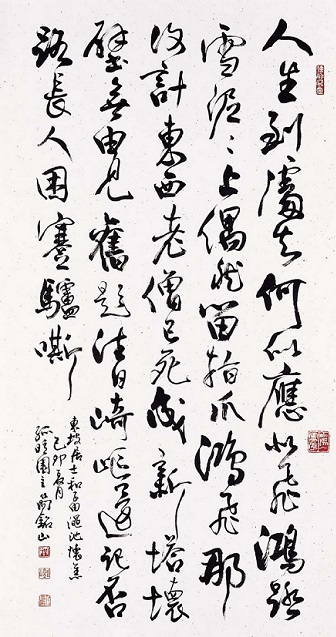 人生到處知何似應似飛鴻踏
雪泥〻上偶然留指爪鴻飛那
復計東西老僧已死成新塔壞
壁無由見舊題往日崎嶇還記否
路長人困蹇驢嘶
東坡居士和子由澠池懷舊
己卯
園主